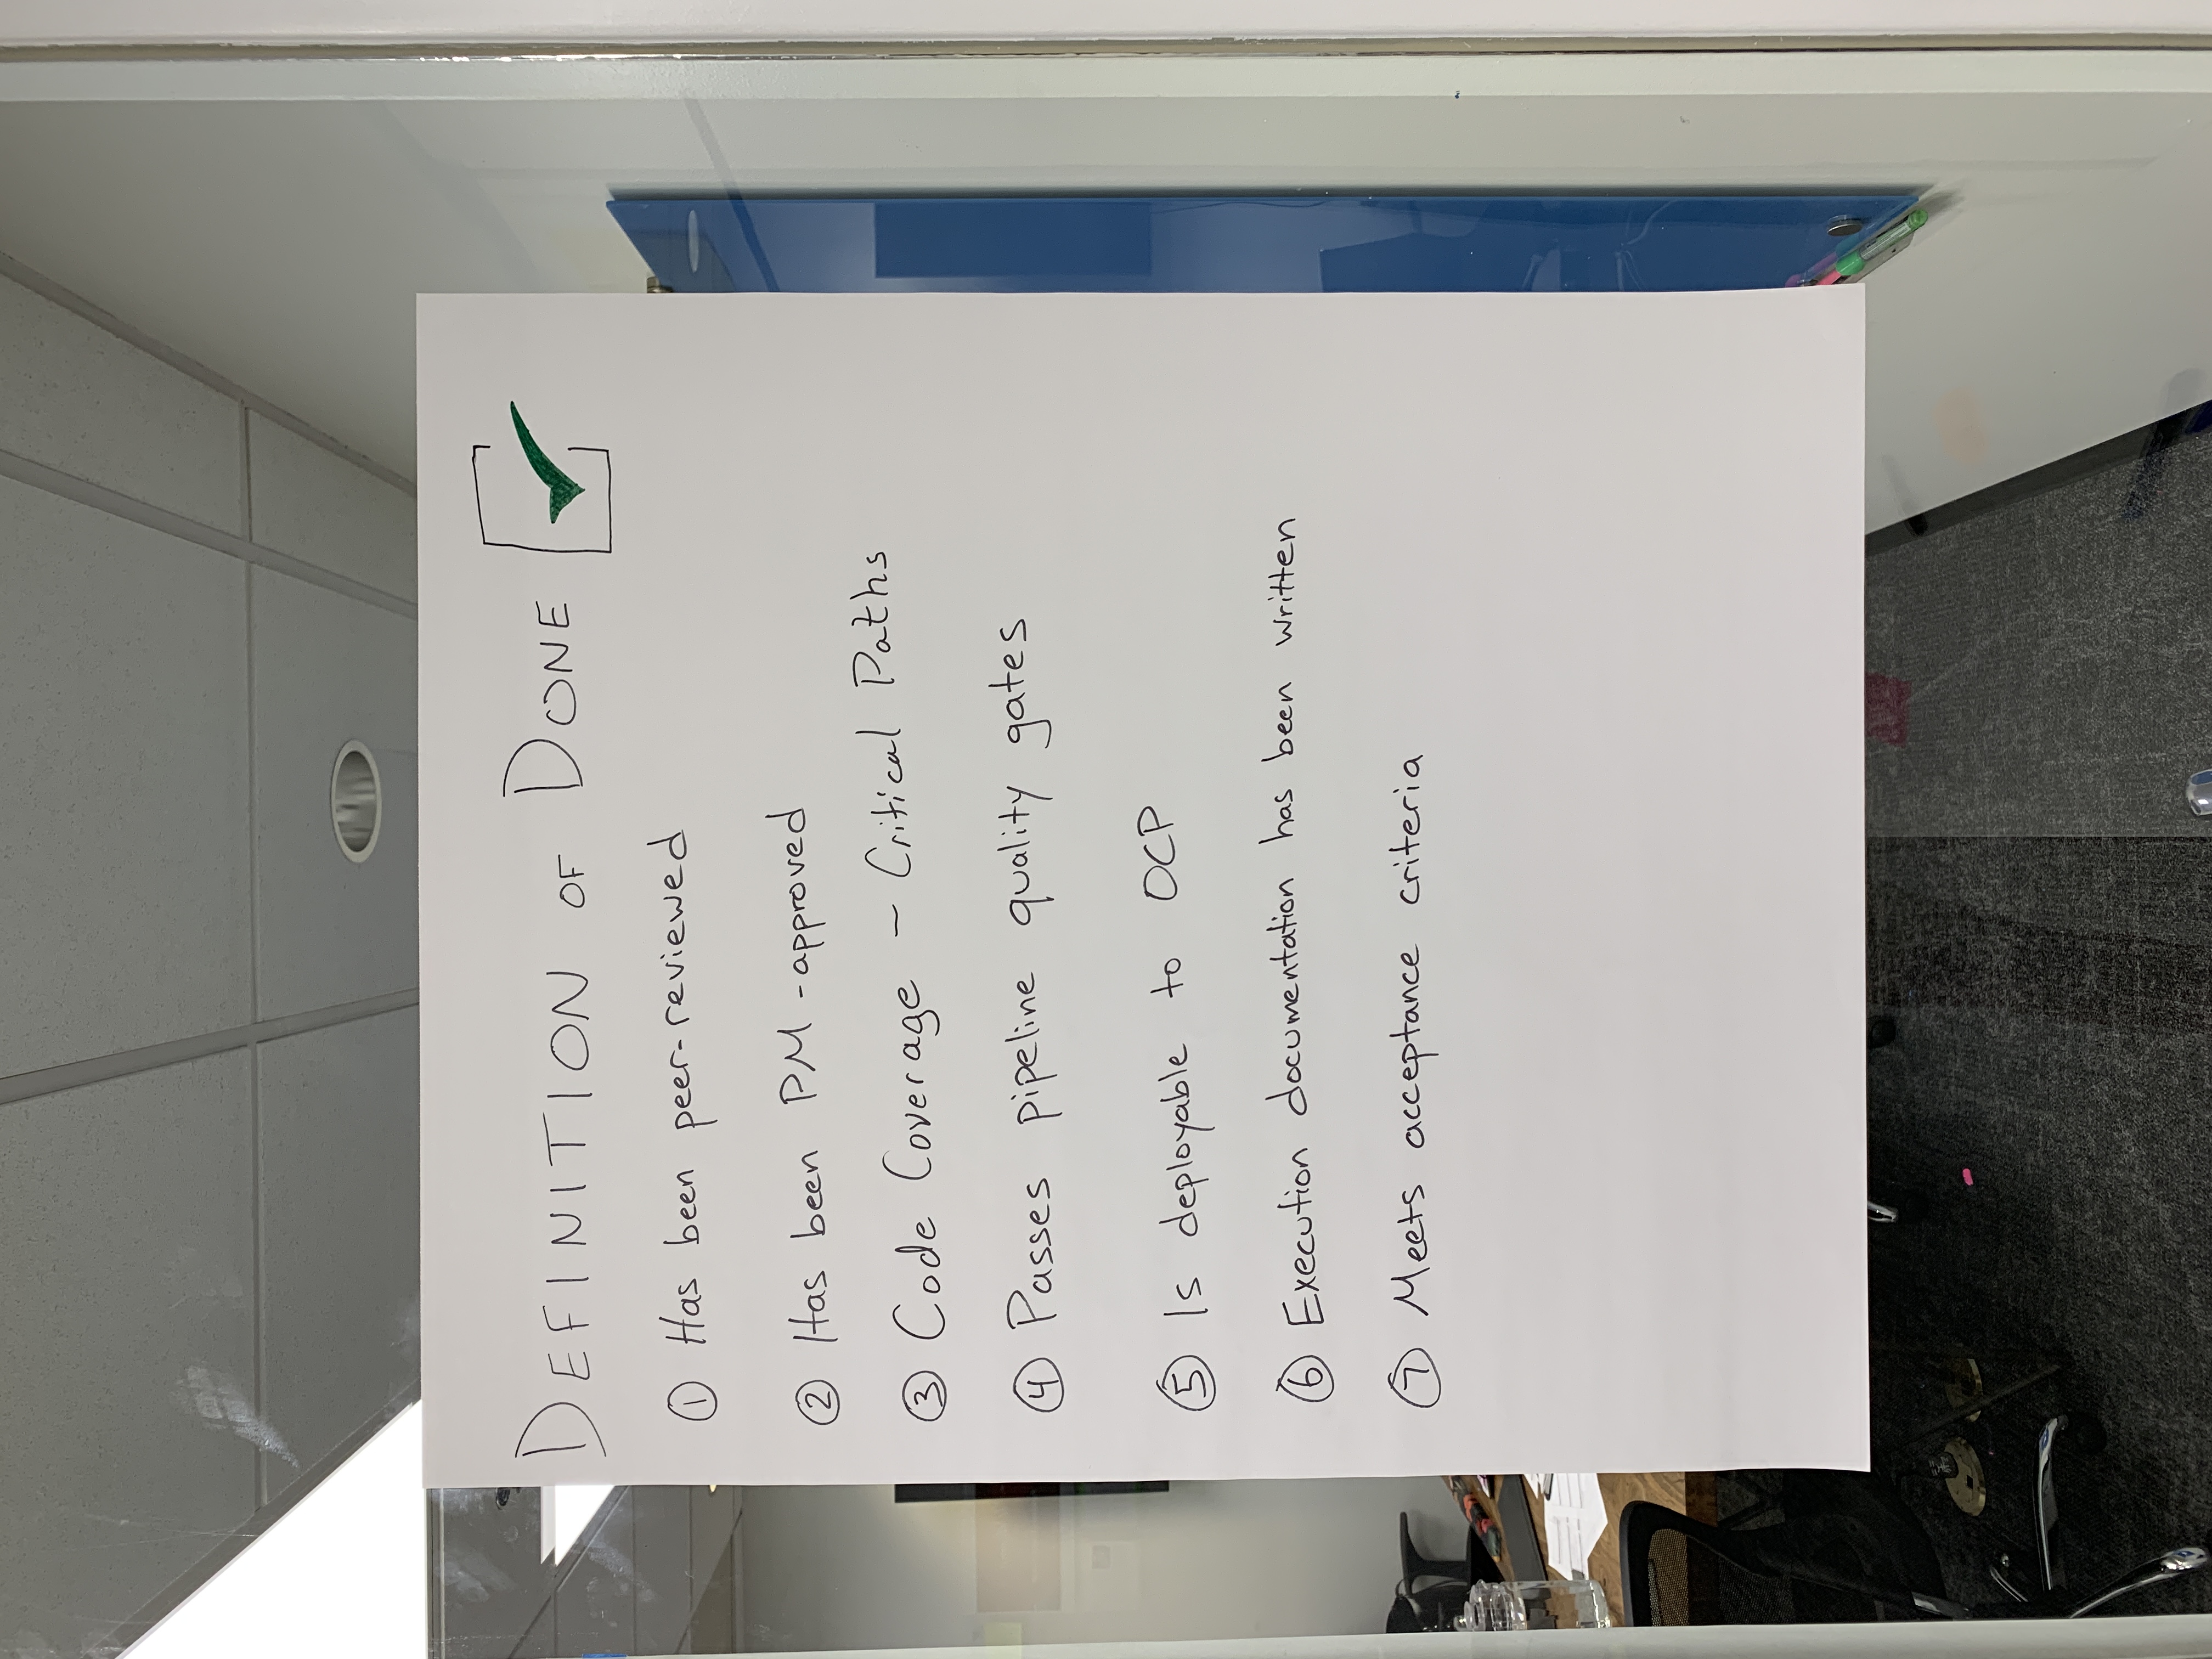 DEFINITION OF DONE
① Has been peer-reviewed
② Has been PM-approved
③ Code Coverage - Critical Paths
④ Passes pipeline quality gates
⑤ Is deployable to OCP
⑥ Execution documentation has been written
⑦ Meets acceptance criteria